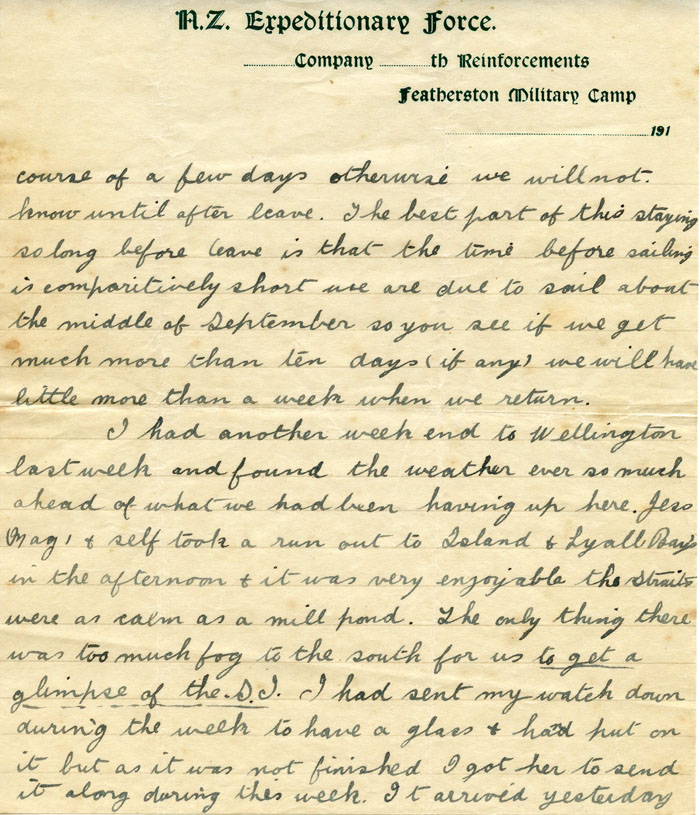 N.Z. Expeditionary Force.
Company th Reinforcements
Featherston Military Camp
191
course of a few days otherwise we will not.
know until after leave. The best part of this staying
so long before leave is that the time before sailing
is comparitively short we are due to sail about
the middle of September so you see if we get
much more than ten days (if any) we will have
little more than a week when we return.
I had another week end to Wellington
last week and found the weather ever so much
ahead of what we had been having up here. Jess
Mag, & self took a run out to Island & Lyall Bays
in the afternoon & it was very enjoyable the Straits
were as calm as a mill pond. The only thing there
was too much fog to the south for us to get a
glimpse of the S.I. I had sent my watch down
during the week to have a glass & hand put on
it but as it was not finished I got her to send
it along during this week. It arrived yesterday